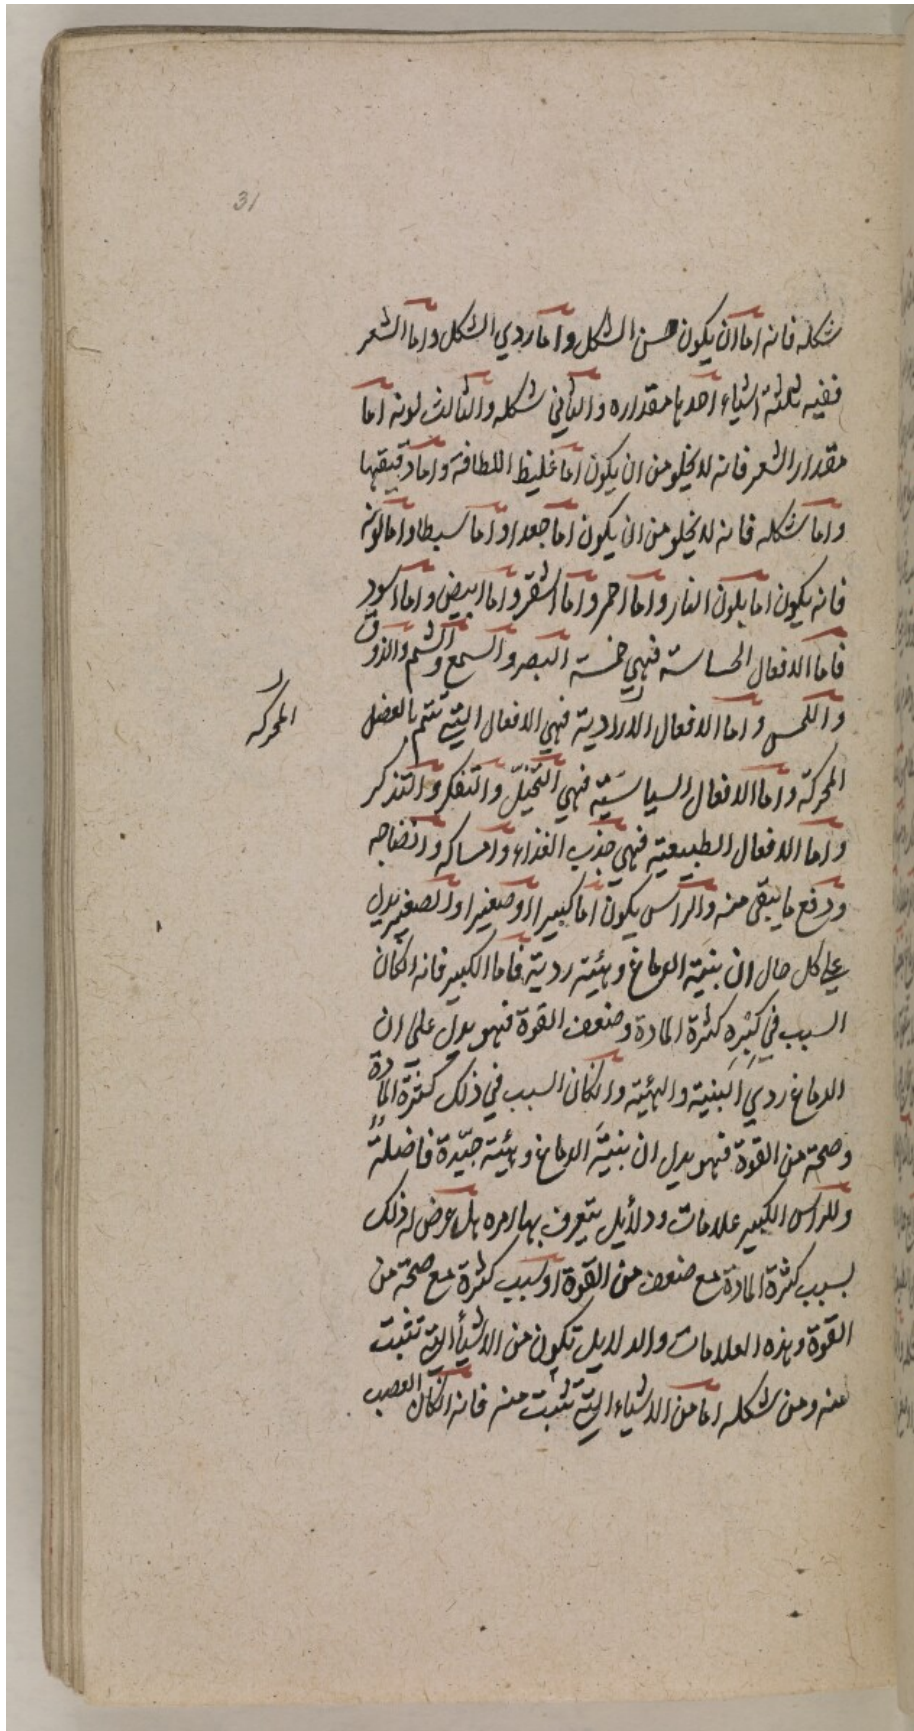 31
شكله فانه اما ان يكون حسن الشكل واما ردي الشكل واما الشعر
ففيه ثلثة اشياء احدها مقداره والثاني شكله والثالث لونه اما
مقدار الشعر فانه لا يخلو من ان يكون اما غليظ اللطافة واما دقيقها
واما شكله فانه لا يخلو من ان يكون اما جعدا واما سبطا واما لونه
فانه يكون اما بلون النار واما احمر واما اشقر واما ابيض واما اسود
فاما الافعال الحساسة فهي خمسة البصر والسمع والشم والذوق
واللمس واما الافعال الارادية فهي الافعال التي تتم بالعضل
المحركة
المحركة واما الافعال السياسيّة فهي التخيّل والتفكر والتذكر
واما الافعال الطبيعية فهي جذب الغذاء وامساكه وانضاجه
ودفع ما يبقى منه والراس يكون اما كبيرا او صغيرا والصغير يدل
على كل حال ان بنية الدماغ وهيئته ردية فاما الكبير فانه انكان
السبب في كبره كثرة المادة وضعف القوة فهو يدل على ان
الدماغ ردي البنية والهيئة وانكان السبب في ذلك كثرة المادة
وصحة من القوة فهو يدل ان بنية الدماغ وهيئته جيّدة فاضلة
وللراس الكبير علامات ودلائل يتعرف بها امره هل عرض له ذلك
بسبب كثرة المادة مع ضعف من القوة او بسبب كثرة مع صحة من
القوة وهذه العلامات والدلايل تكون من الاشيأ التي تنبت
منه ومن شكله اما من الاشياء التي تنبت منه فانه انكان العصب